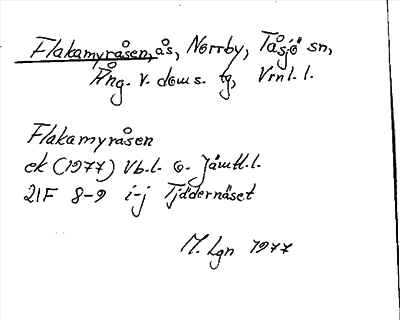 Flakamyråsen, ås, Norrby, Tåsjö sn,
Ång. v. doms. tg, Vrnl. l.
Flakamyråsen
ek (1977) Vb.l. o. Jämtl.l.
21F 8-9 i-j Tjädernäset
M. Lgn 1977